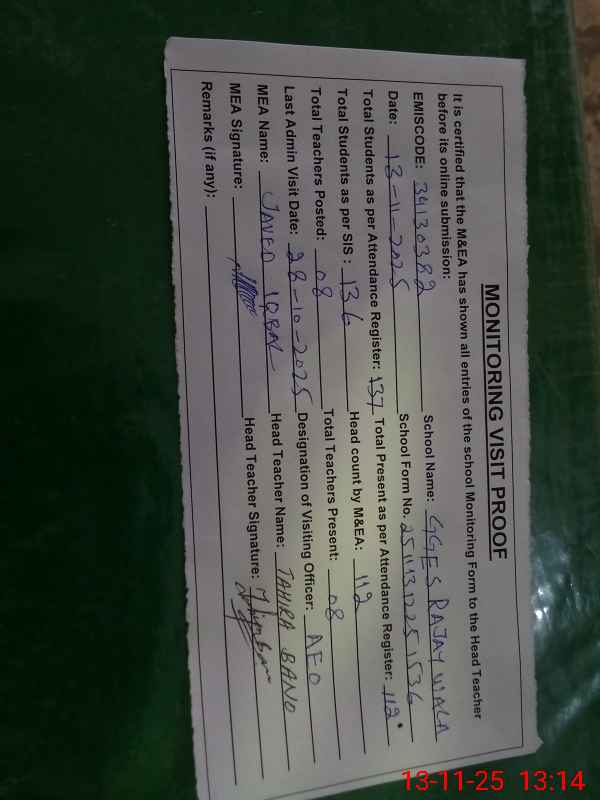 MONITORING VISIT PROOF
It is certified that the M&EA has shown all entries of the school Monitoring Form to the Head Teacher
before its online submission:
EMISCODE: 34130382 School Name: GGES RAJAY WALA
Date: 13-11-2025 School Form No. 25111312251536
Total Students as per Attendance Register: 137 Total Present as per Attendance Register: 112
Total Students as per SIS: 136 Head count by M&EA: 112
Total Teachers Posted: 08 Total Teachers Present: 08
Last Admin Visit Date: 28-10-2025 Designation of Visiting Officer: AEO
MEA Name: JAVED IQBAL Head Teacher Name: TAHIRA BANO
MEA Signature: Head Teacher Signature:
Remarks (if any):
13-11-25 13:14